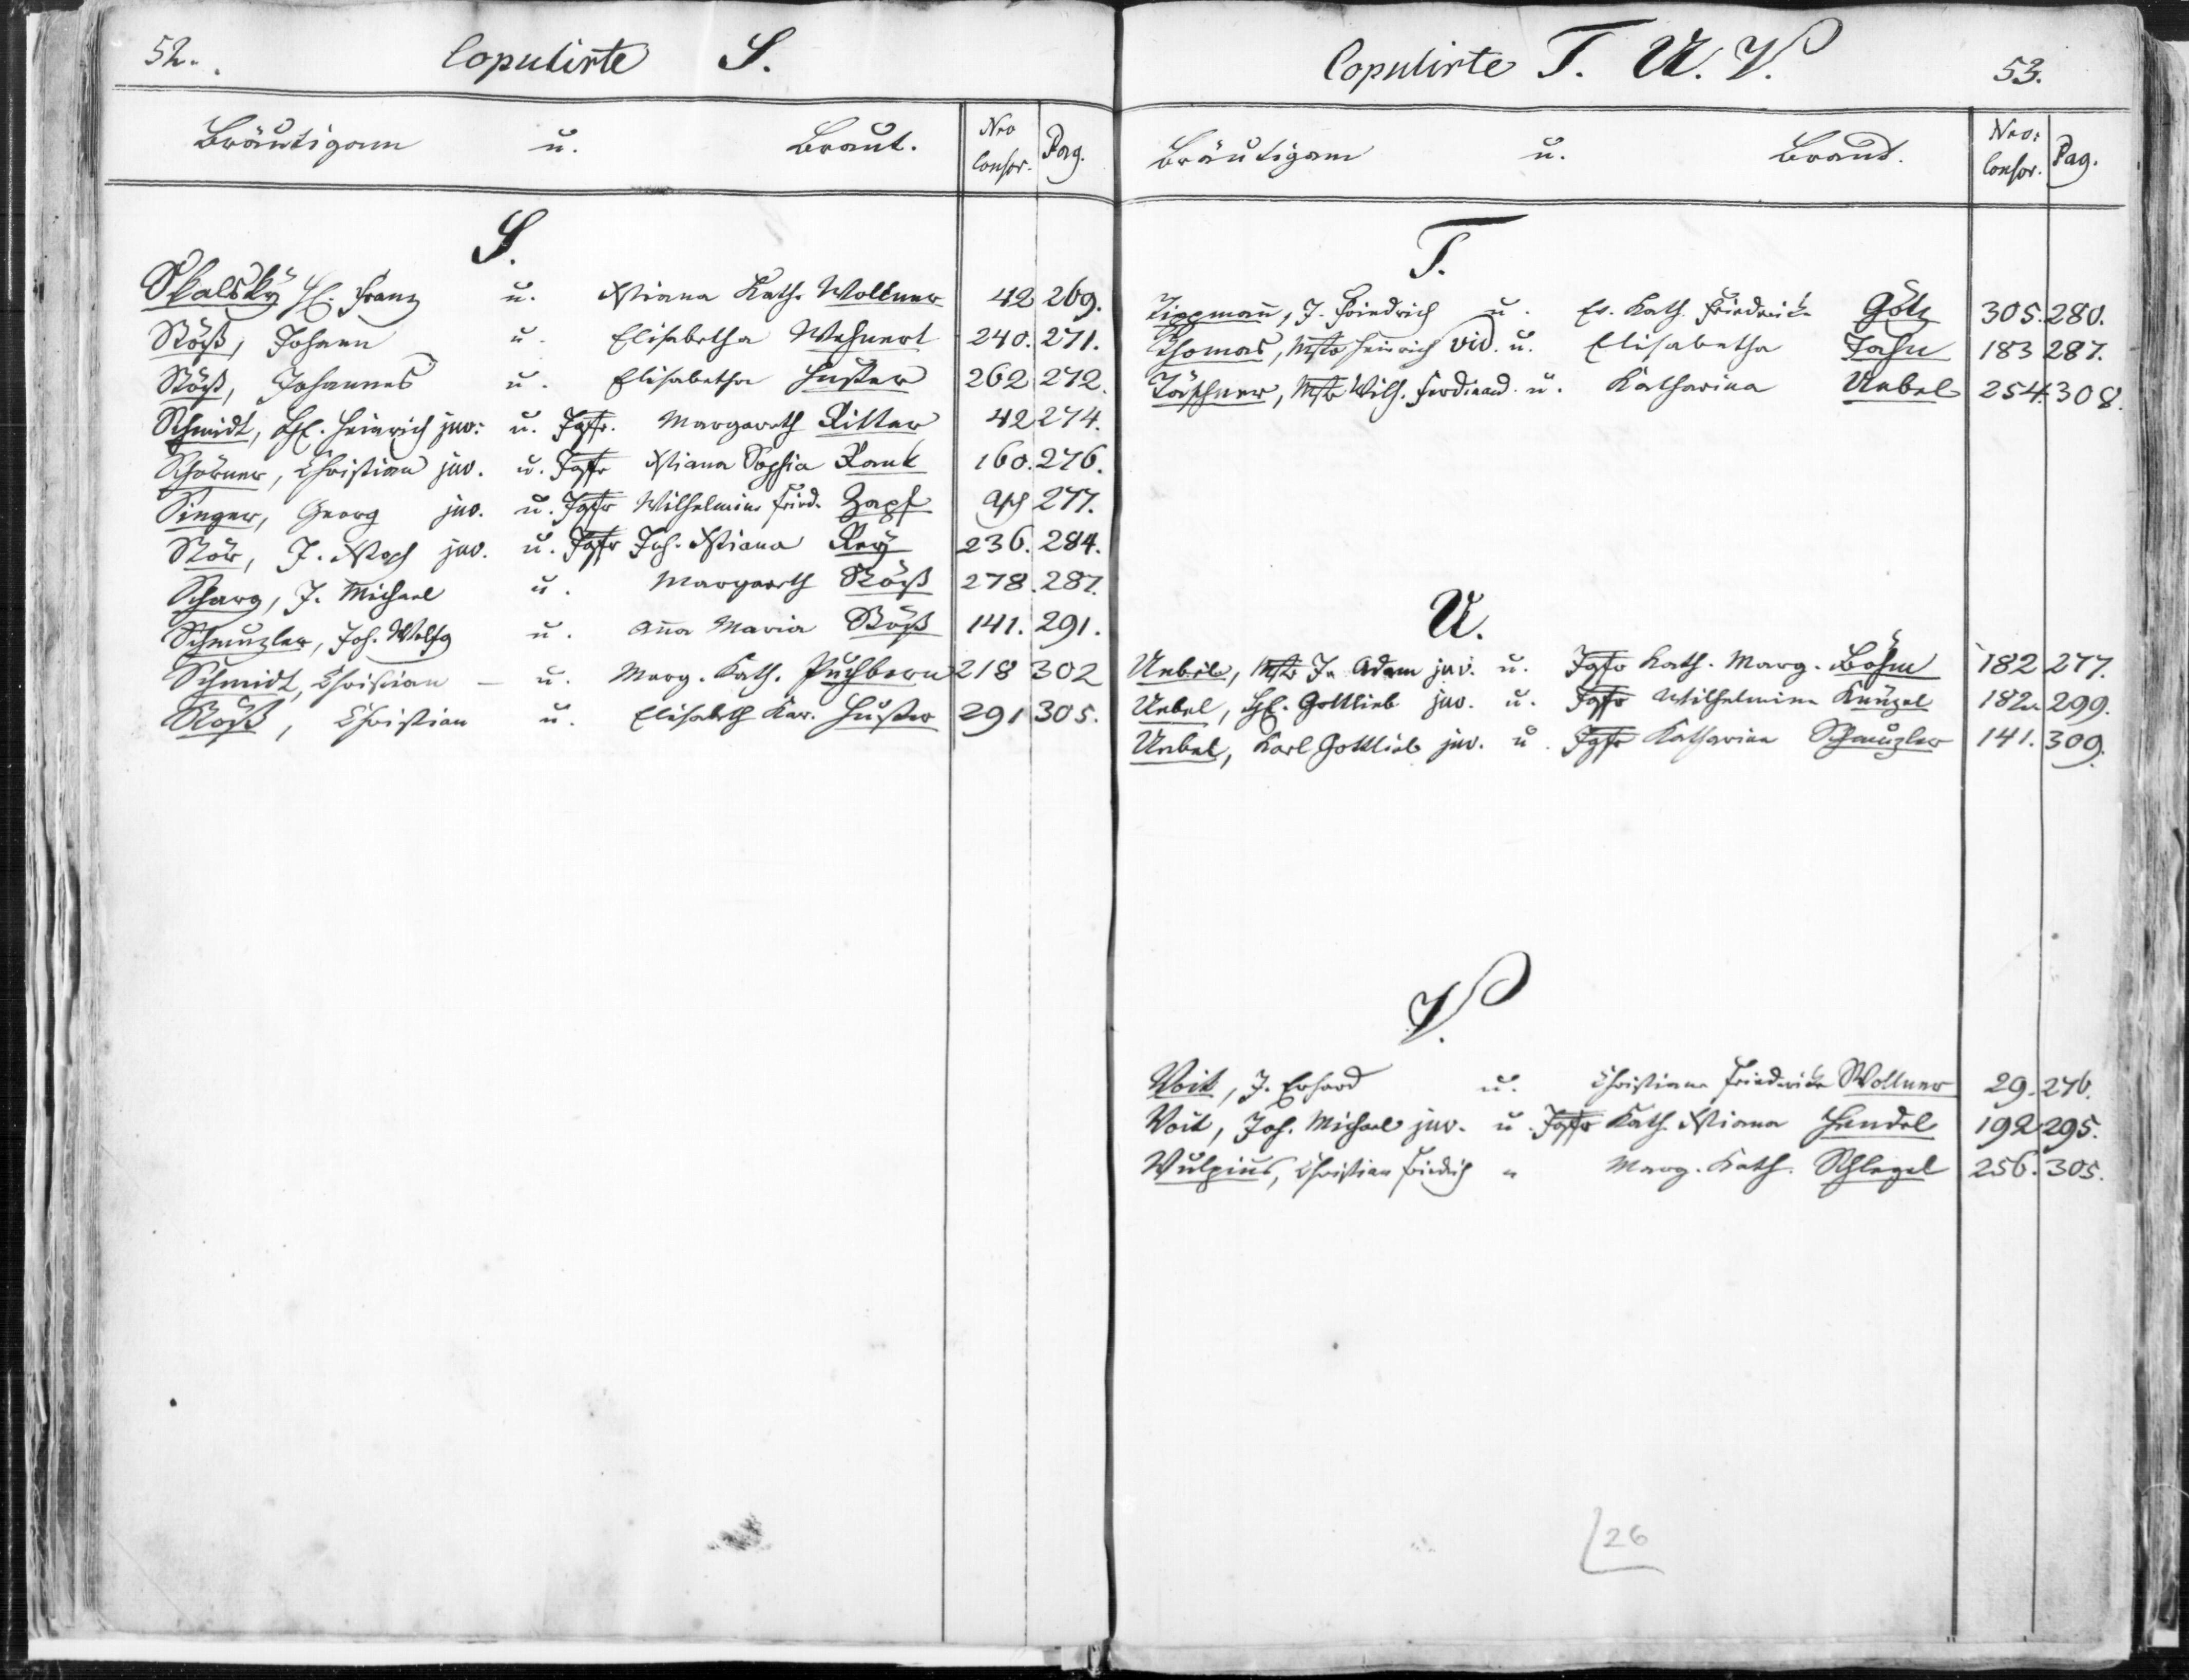 52.
Copulirte S.
Bräutigam u. Braut. Nro Conscr. Pag.
S.
Skalsky H. Franz u. Xstiana Kath. Wollner 42 269.
Stöß, Johann u. Elisabetha Wehnert 240. 271.
Stöß, Johannes u. Elisabetha Huster 262 272.
Schmidt, Heinrich juv: u. Jgfr. Margareth Ritter 42 274.
Schörner, Christian juv. u. Jgfr Xstiana Sophia Rank 160. 276.
Singer, Georg juv. u. Jgfr Wilhelmine Fried. Zapf 277.
Stör, J. Xstoph juv. u. Jgfr Joh. Xstiana Rey 236. 284.
Scharg, J. Michael u. Margareth Stöß 278. 287.
Schmuzler, Joh. Wolfg u. Aña Maria Stöß 141. 291.
Schmidt, Christian – u. Marg. Kath. Puchbern 218 302
Stöß, Christian u. Elisabeth Kar. Huster 291 305.
Copulirte T. U. V.
53.
Bräutigam u. Braut. Nro: Conscr. Pag.
T.
Tippmañ, J. Friedrich u. Ev. Kath. Friedricke Götz 305. 280.
Thomas, Mstr Heinrich vid. u. Elisabetha Jahn 183 287.
Täschner, Mstr Wilh. Ferdinand u. Katharina Uebel 254. 308.
U.
Uebel, Mstr J. Adam juv. u. Jgfr Kath. Marg. Böhm 182 277.
Uebel, Gottlieb juv. u. Jgfr Wilhelmine Künzel 182. 299.
Uebel, Karl Gottlieb juv. u. Jgfr Katharina Schmuzler 141. 309.
V.
Voit, J. Erhard u. Christiana Friedricke Wollner 29. 276.
Voit, Joh. Michael juv. u. Jgfr Kath. Xstiana Hendel 192 295.
Vulpius, Christian Friedrich u Marg. Kath. Schlegel 256. 305.
26